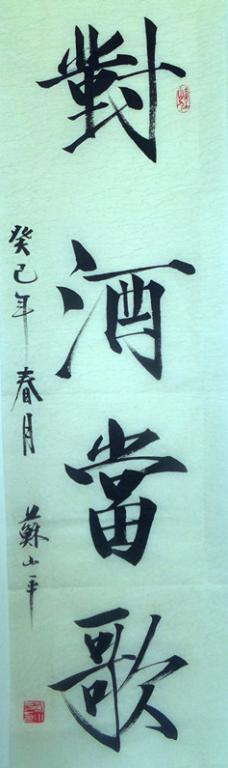 對酒當歌
癸巳年春月 蘇山平